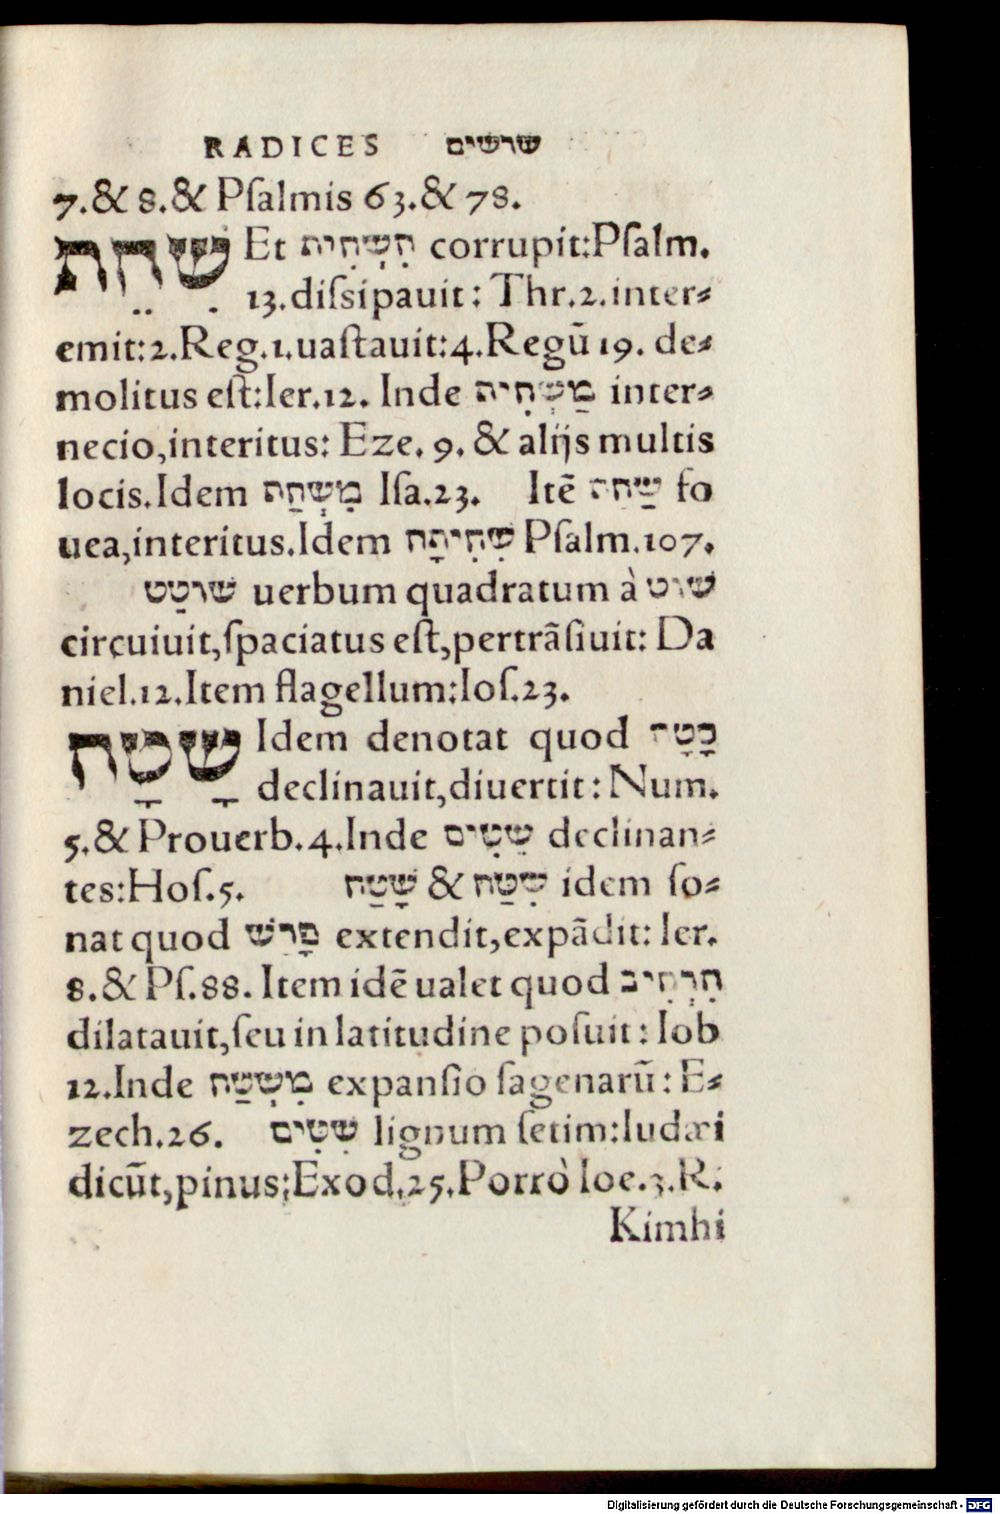 RADICES שרשים
7.& 8.& Pſalmis 63.& 78.
שִׁחֵת Et הִשְׁחִית corrupit:Pſalm.
13.diſsipauit: Thr.2.inter⸗
emit:2.Reg.1.uaſtauit:4.Regū 19. de⸗
molitus eſt:Ier.12. Inde מַשְׁחִית inter⸗
necio,interitus: Eze. 9. & alijs multis
locis.Idem מִשְׁחַת Iſa.23. Itē שַׁחַת fo
uea,interitus.Idem שְׁחִיתָה Pſalm.107.
שׁוֹטַט uerbum quadratum à שׁוּט
circuiuit,ſpaciatus eſt,pertrāſiuit: Da
niel.12.Item flagellum:Ioſ.23.
שָׂטָה Idem denotat quod
declinauit,diuertit: Num.
5.& Prouerb.4.Inde שֵׂטִים declinan⸗
tes:Hoſ.5. שָׁטַח & שִׁטַּח idem ſo⸗
nat quod פָּרַשׂ extendit,expādit: Ier.
8.& Pſ.88. Item idē ualet quod הִרְחִיב
dilatauit,ſeu in latitudine poſuit: Iob
12.Inde מִשְׁטַח expanſio ſagenarū: E⸗
zech.26. שִׁטִּים lignum ſetim:Iudæi
dicūt,pinus:Exod.25.Porrò Ioe.3.R.
Kimhi
Digitalisierung gefördert durch die Deutsche Forschungsgemeinschaft - DFG